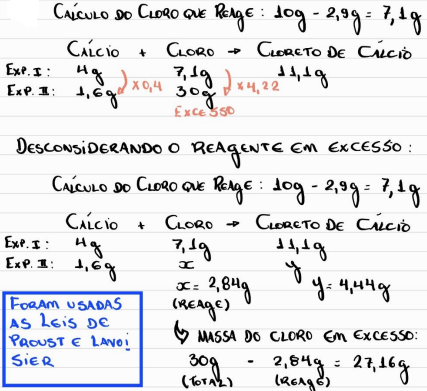 CÁLCULO DO CLORO QUE REAGE: 10g - 2,9g = 7,1g
CÁLCIO + CLORO → CLORETO DE CÁLCIO
EXP. I: 4g 7,1g 11,1g
EXP. II: 1,6g x0,4 30g x4,22
EXCESSO
DESCONSIDERANDO O REAGENTE EM EXCESSO:
CÁLCULO DO CLORO QUE REAGE: 10g - 2,9g = 7,1g
CÁLCIO + CLORO → CLORETO DE CÁLCIO
EXP. I: 4g 7,1g 11,1g
EXP. II: 1,6g x y
x = 2,84g y = 4,44g
(REAGE)
FORAM USADAS
AS LEIS DE
PROUST E LAVOI
SIER
↳ MASSA DO CLORO EM EXCESSO:
30g - 2,84g = 27,16g
(TOTAL) (REAGE)